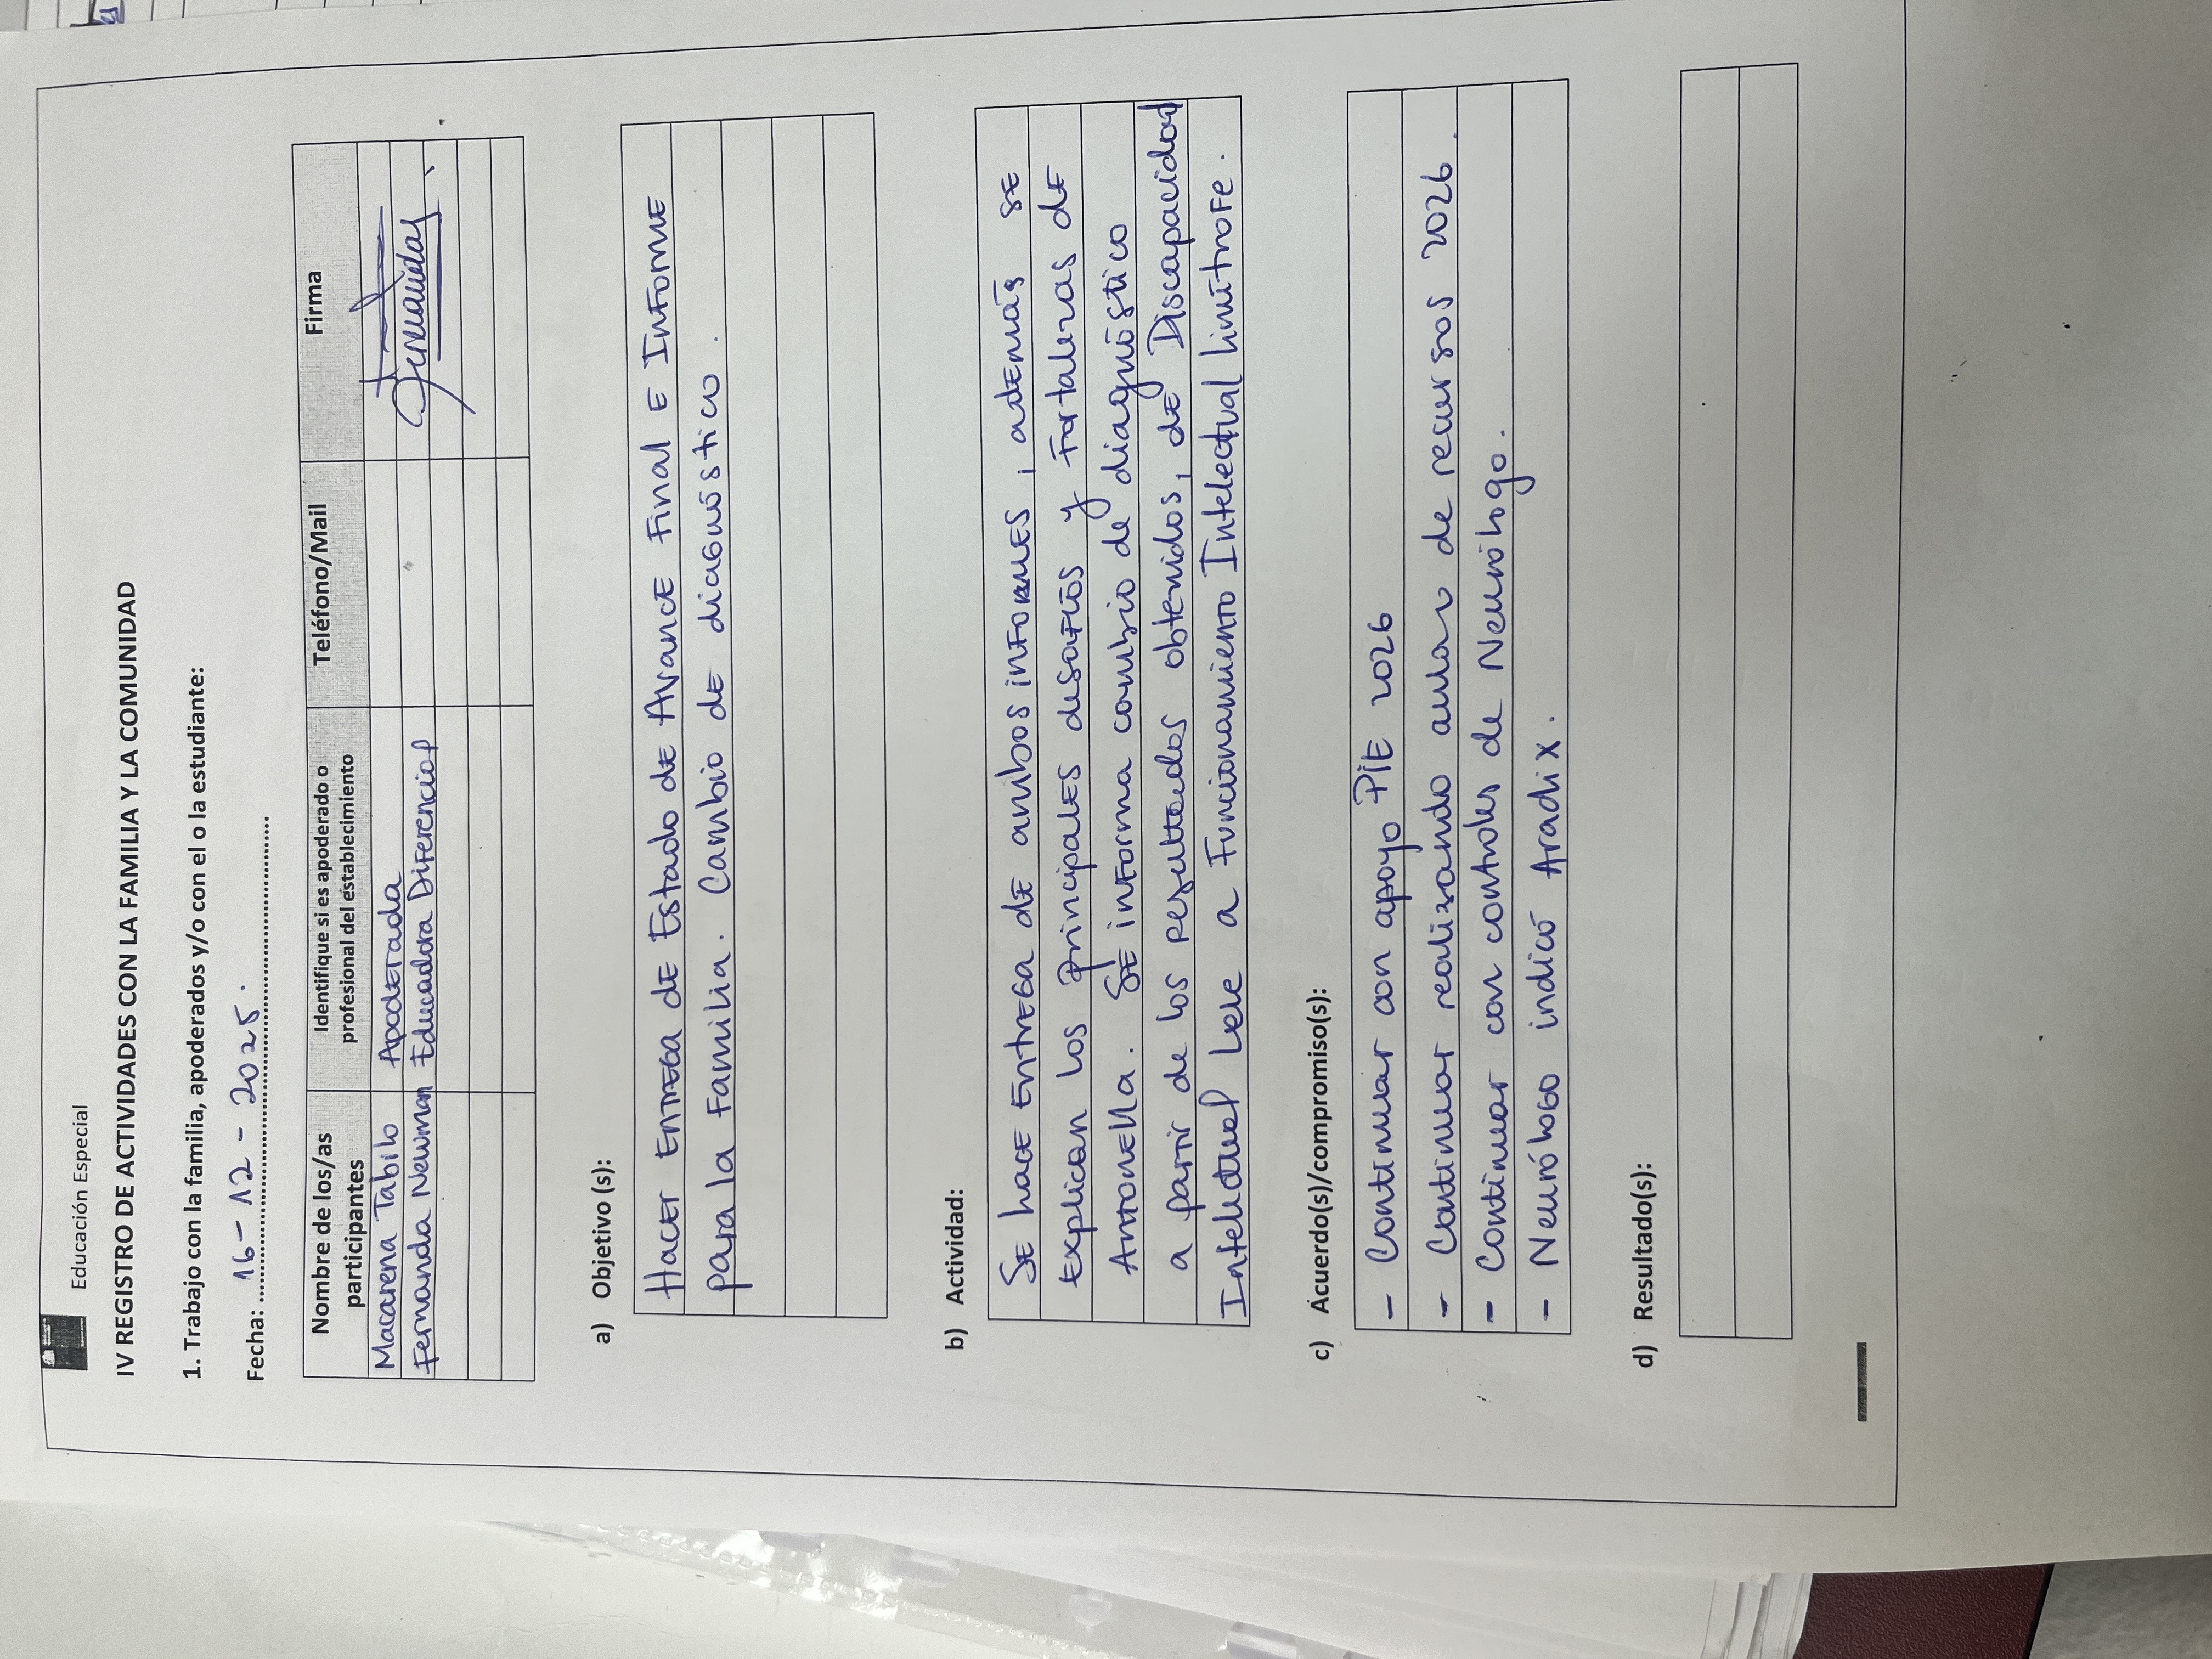 Educación Especial
IV REGISTRO DE ACTIVIDADES CON LA FAMILIA Y LA COMUNIDAD
1. Trabajo con la familia, apoderados y/o con el o la estudiante:
Fecha: 16-12-2025.
Nombre de los/as participantes Identifique si es apoderado o profesional del establecimiento Teléfono/Mail Firma
Macarena Tabilo Apoderada
Fernanda Neuman Educadora Diferencial
a) Objetivo (s):
Hacer entrega de Estado de Avance Final e Infome
para la Familia. Cambio de diagnóstico.
b) Actividad:
Se hace entrega de ambos informes, además se
explican los principales desafíos y fortalezas de
Antonella. Se informa cambio de diagnóstico
a partir de los resultados obtenidos, de Discapacidad
Intelectual Leve a Funcionamiento Intelectual Limítrofe.
c) Acuerdo(s)/compromiso(s):
- Continuar con apoyo PIE 2026
- Continuar realizando aula de recursos 2026.
- Continuar con controles de Neurólogo.
- Neurólogo indicó Aradix.
d) Resultado(s):